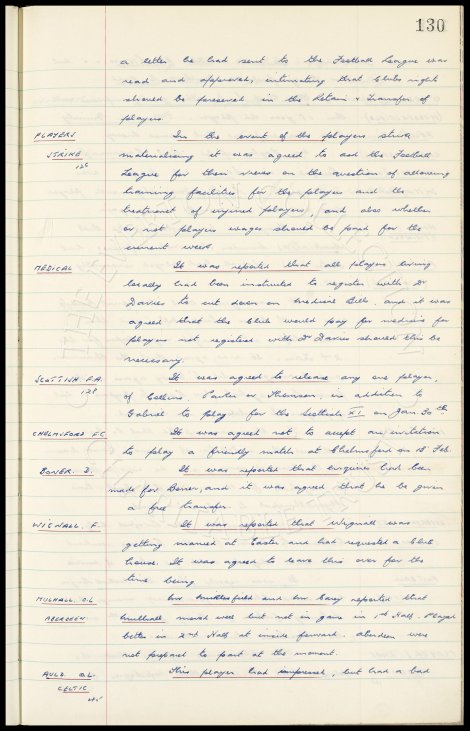 130
a letter he had sent to the Football League was
read and approved, intimating that Clubs right
should be preserved in the Retain & Transfer of
players.
PLAYERS In the event of the players strike
STRIKE materialising it was agreed to ask the Football
126 League for their views on the question of allowing
training facilities for the players and the
treatment of injured players, and also whether
or not players wages should be paid for the
current week.
MEDICAL It was reported that all players living
locally had been instructed to register with Dr
Davies to cut down on medical Bills and it was
agreed that the Club would pay for medicine for
players not registered with Dr Davies should this be
necessary.
SCOTTISH. F.A. It was agreed to release any one player,
128 of Collins, Parker or Thomson, in addition to
Gabriel to play for the Scottish XI on Jan 30th.
CHELMSFORD F.C It was agreed not to accept an invitation
to play a friendly match at Chelmsford on 18 Feb.
BONER. D. It was reported that enquiries had been
made for Boner, and it was agreed that he be given
a free transfer
WIGNALL. F. It was reported that Wignall was
getting married at Easter and had requested a Club
house. It was agreed to leave this over for the
time being.
MULHALL. O.L Mr Micklesfield and Mr Carey reported that
ABERDEEN Mulhall moved well but not in game in 1st Half. Played
better in 2nd Half at inside forward. Aberdeen were
not prepared to part at the moment.
AULD. O.L. This player had impressed, but had a bad
CELTIC